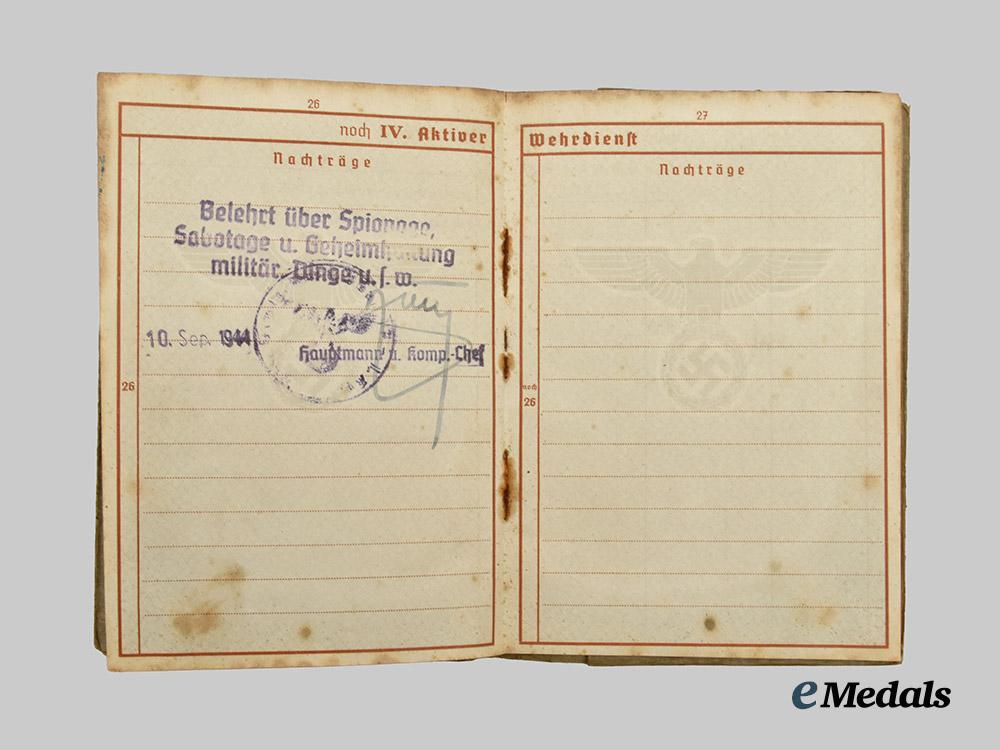 26
noch IV. Aktiver
Nachträge
Belehrt über Spionage,
Sabotage u. Geheimhaltung
militär. Dinge u. s. w.
10. Sep. 1944
Hauptmann u. Komp.-Chef
26
27
Wehrdienst
Nachträge
noch
26
eMedals